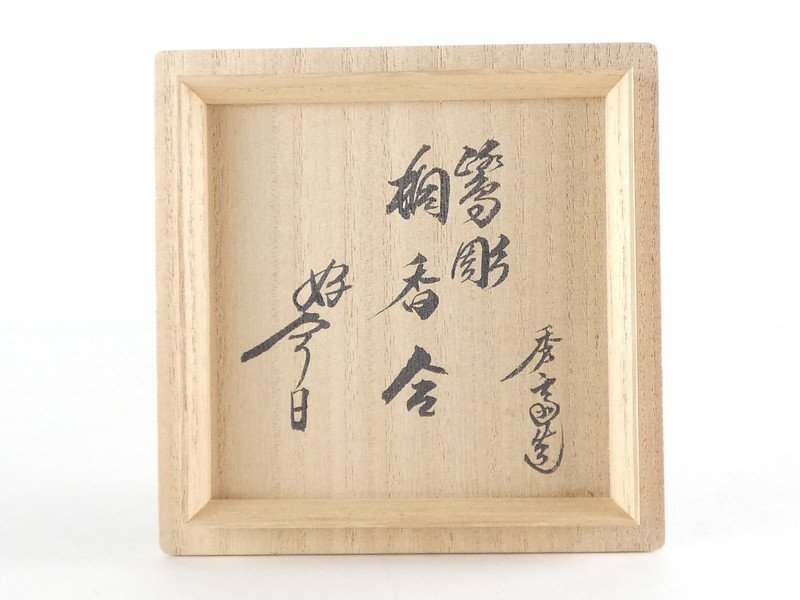 鶯彫
桐香合
秀斎造
好今日